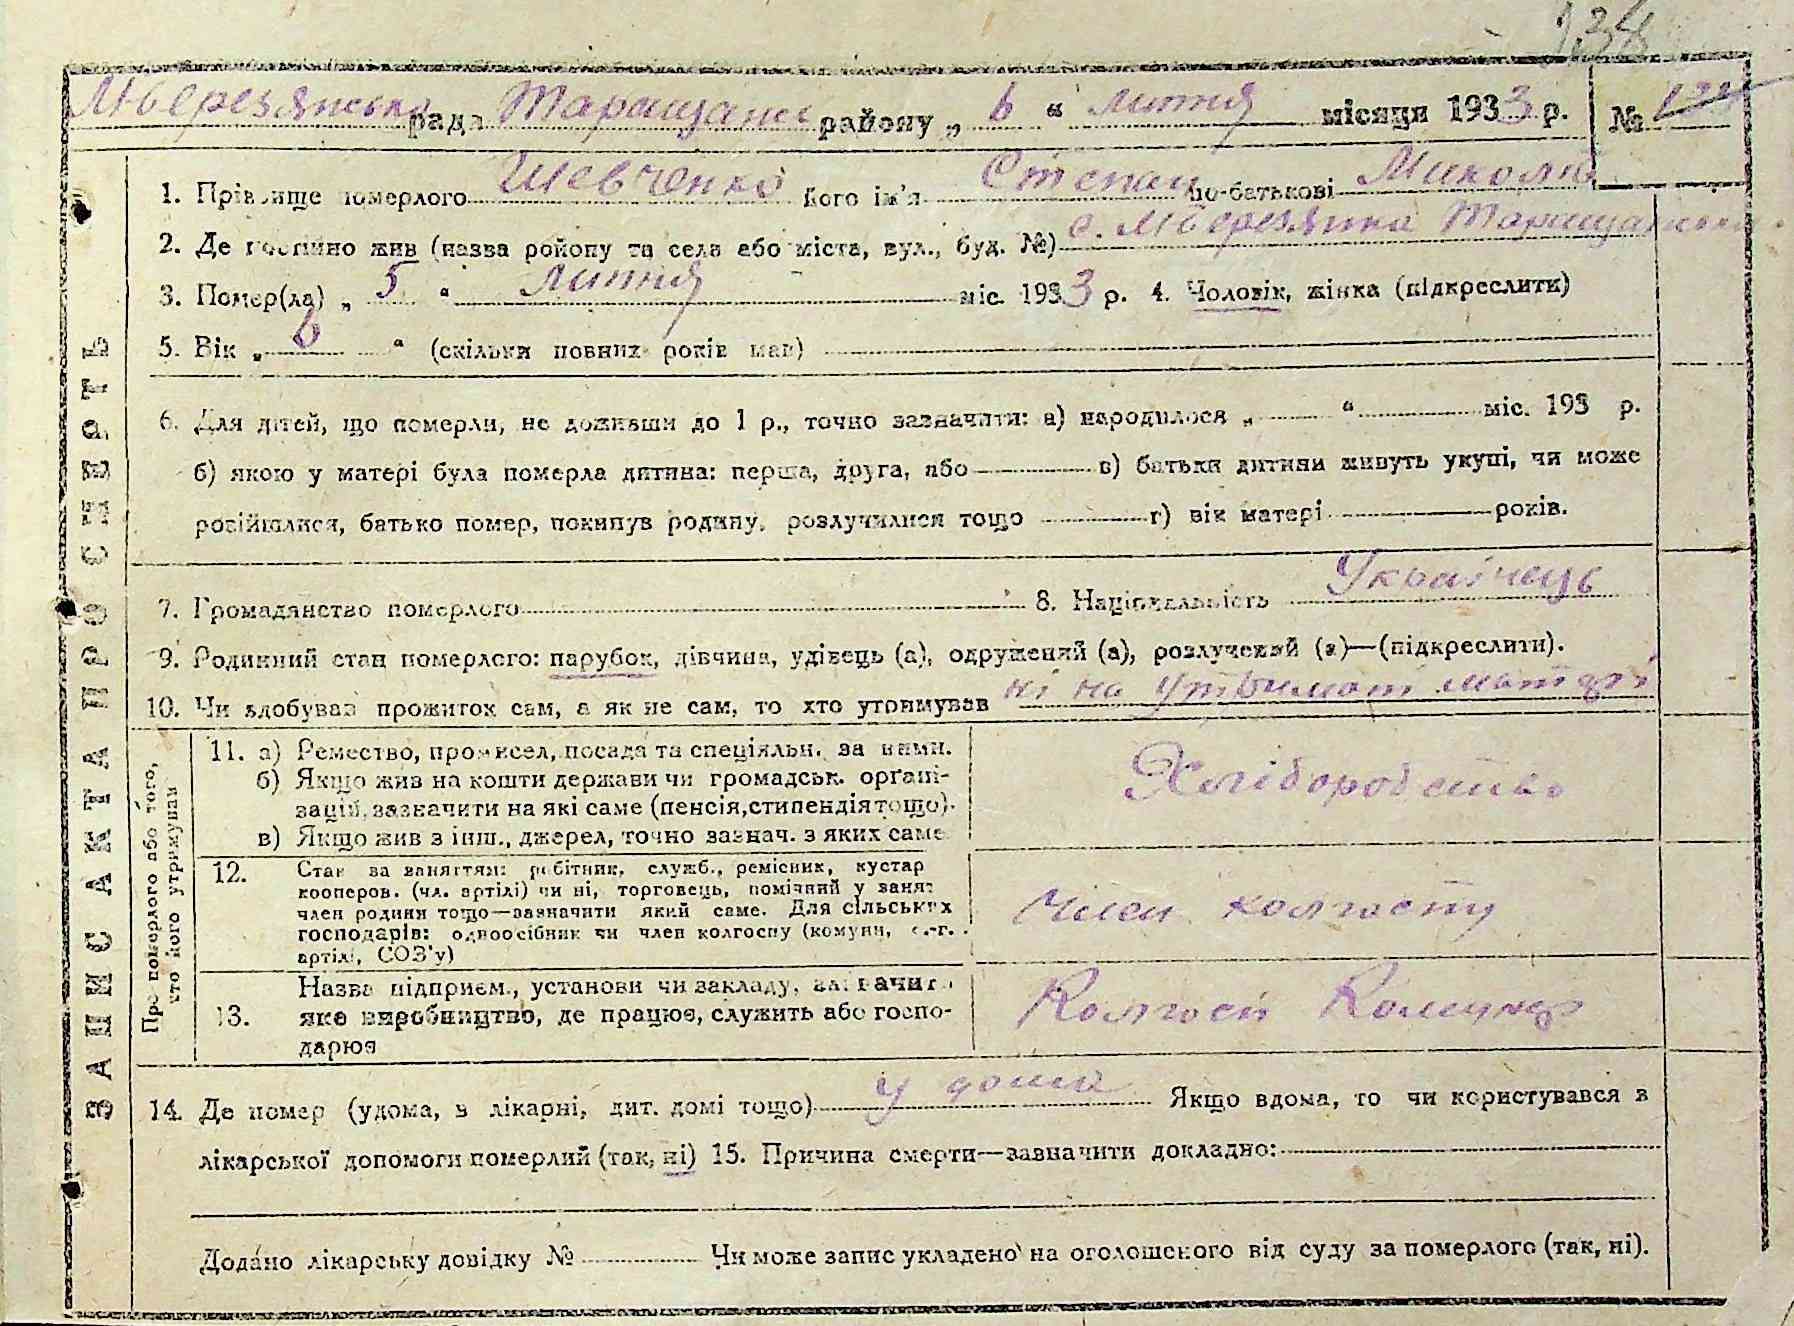 134
Мберезянська рада Таращансь району „ 6 “ липня місяця 1933 р. № 134
ЗАПИС АКТА ПРО СМЕРТЬ
1. Прізвище померлого Шевченко його ім'я Степан по-батькові Микола
2. Де постійно жив (назва ройону та села або міста, вул., буд. №) с. Мберезянка Таращанськ
3. Помер(ла) „ 5 “ липня міс. 1933 р. 4. Чоловік, жінка (підкреслити)
5. Вік „ 6 “ (скільки повних років мав)
6. Для дітей, що померли, не доживши до 1 р., точно зазначити: а) народилося „ “ міс. 193 р.
б) якою у матері була померла дитина: перша, друга, або в) батьки дитини живуть укупі, чи може
розійшлися, батько помер, покинув родину, розлучилися тощо г) вік матері років.
7. Громадянство померлого 8. Національність Українець
9. Родинний стан померлого: парубок, дівчина, удівець (а), одружений (а), розлучений (а)—(підкреслити).
10. Чи здобував прожиток сам, а як не сам, то хто утримував ні на утриман матері
Про померлого або того,
хто його утримував
11. а) Ремество, промисел, посада та спеціяльн. за ними.
б) Якщо жив на кошти держави чи громадськ. орґані-
зацій, зазначити на які саме (пенсія, стипендія тощо).
в) Якщо жив з інш., джерел, точно зазнач. з яких саме
Хліборобство
12. Стан за заняттям: робітник, служб., ремісник, кустар
кооперов. (чл. артілі) чи ні, торговець, помічний у занят
член родини тощо—зазначити який саме. Для сільських
господарів: одноосібник чи член колгоспу (комуни, с.-г.
артілі, СОЗ'у)
Член колгоспу
13. Назва підприєм., установи чи закладу, зазначити
яке виробництво, де працює, служить або госпо-
дарює
Колгосп Комунар
14. Де помер (удома, в лікарні, дит. домі тощо) у дома Якщо вдома, то чи користувався з
лікарської допомоги померлий (так, ні) 15. Причина смерти—зазначити докладно:
Додано лікарську довідку № Чи може запис укладено на оголошеного від суду за померлого (так, ні).